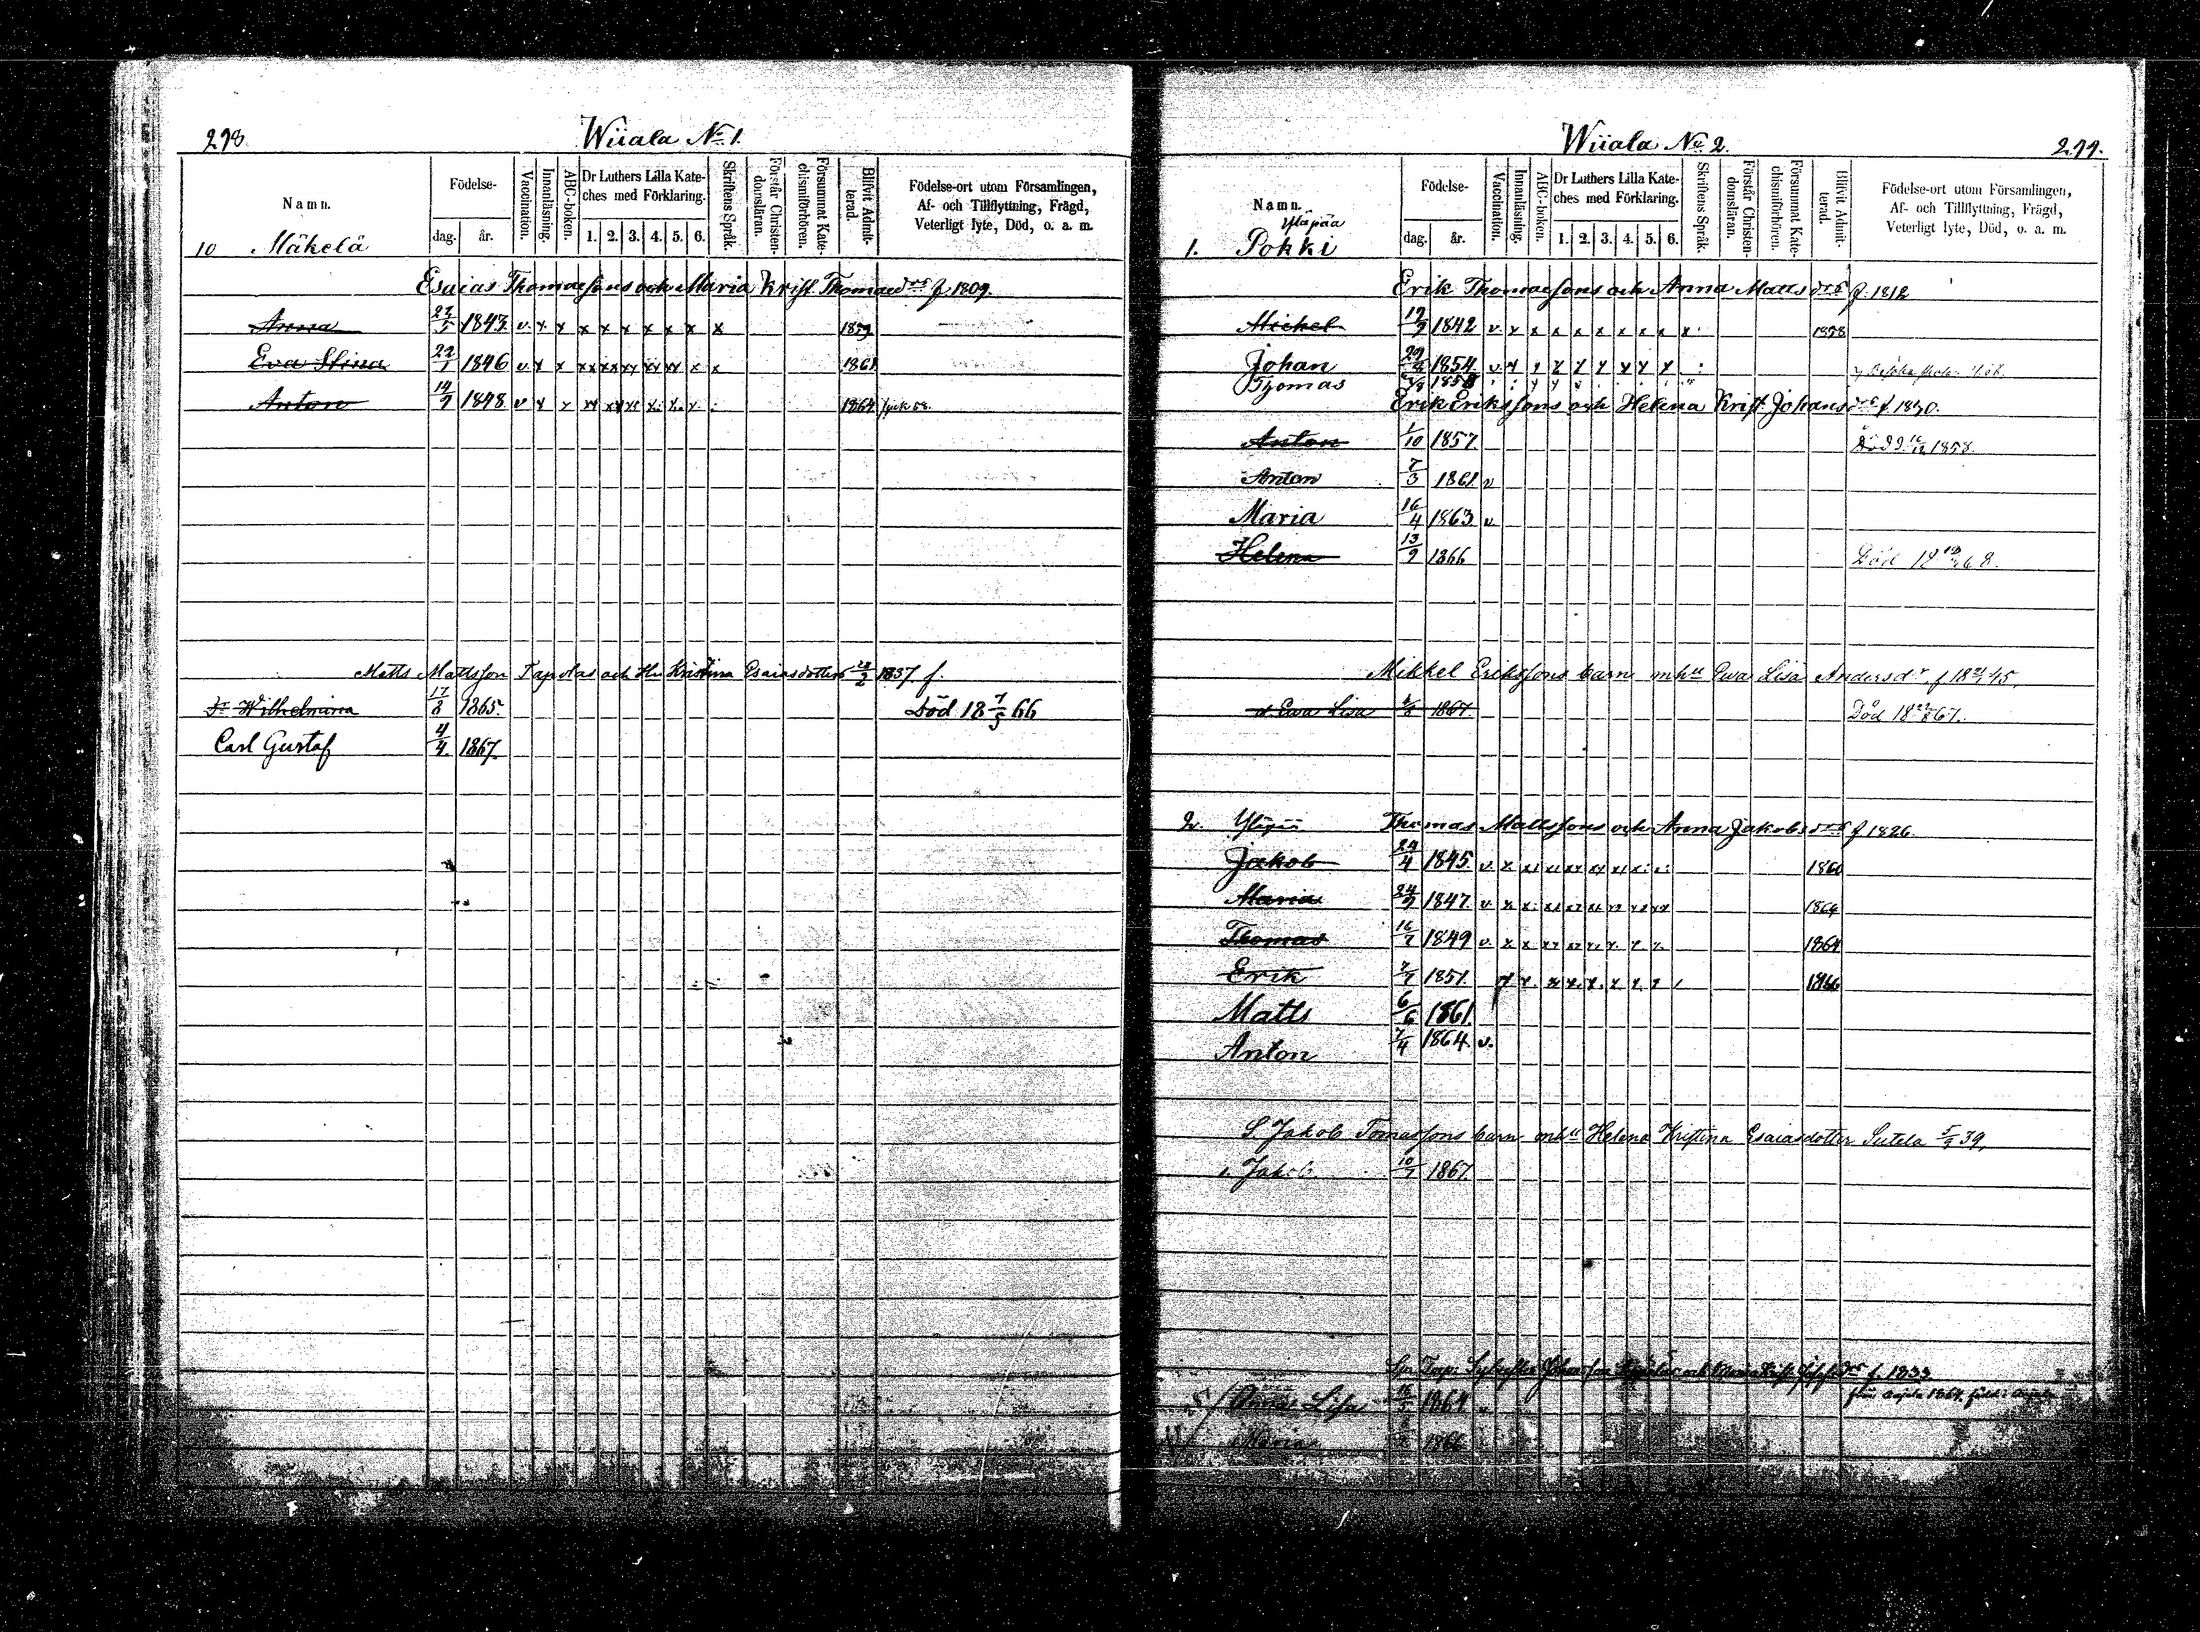 278.
Wiiala No 1.
Namn.
Födelse-
dag.
år.
Vaccination.
Innanläsning.
ABC-boken.
Dr Luthers Lilla Kate-
ches med Förklaring.
1. 2. 3. 4. 5. 6.
Skriftens Språk.
Förstår Christen-
domsläran.
Försummat Kate-
chismiförhören.
Blifvit Admit-
terad.
Födelse-ort utom Församlingen,
Af- och Tillflyttning, Frägd,
Veterligt lyte, Död, o. a. m.
10 Mäkelä
Esaias Thomassons och Maria Krist. Thomaed:rs f. 1809.
Anna 27/5 1843 v. x x x x x x x x x 1859
Eva Stina 22/1 1846 v. x x xx xx xx xx xx x x 1861
Anton 14/9 1848 v x x 1864
Matts Mattsson Tapolas och Hu Kristina Esaiasdotters 28/2 1837 f.
Wilhelmina 17/8 1865. Död 18 7/5 66
Carl Gustaf 4/4 1867.
Wiiala No 2.
279.
Namn.
Födelse-
dag.
år.
Vaccination.
Innanläsning.
ABC-boken.
Dr Luthers Lilla Kate-
ches med Förklaring.
1. 2. 3. 4. 5. 6.
Skriftens Språk.
Förstår Christen-
domsläran.
Försummat Kate-
chismiförhören.
Blifvit Admit-
terad.
Födelse-ort utom Församlingen,
Af- och Tillflyttning, Frägd,
Veterligt lyte, Död, o. a. m.
Yläpää
1. Pokki
Erik Thomassons och Anna Mattsd:rs f. 1812
Mickel 19/9 1842 v. x x x x x x x x x 1858
Johan 1854. v. x x x x x x x x
Tjomas 1858
Erik Erikssons och Helena Krist. Johansd:rs f. 1830.
Anton 1/10 1857. Död 1858.
Anton 7/3 1861. v
Maria 16/4 1863 v.
Helena 13/9 1866 Död 18 68.
Mikkel Erikssons barn mhu Ewa Lisa Andersd:r f 18 45.
d. Ewa Lisa 1867. Död 18 67.
2. Thomas Mattssons och Anna Jakobsd:rs f 1826.
Jakob 24/4 1845. v. 1860
Maria 24/9 1847. v. 1864
Thomas 16/7 1849 v. 1864
Erik 7/7 1851. 1866
Matts 6/6 1861.
Anton 7/4 1864. v.
S. Jakob Tomassons barn mhu Helena Kristina Esaiasdotter Sutela 5/9 39,
Jakob 10/7 1867.
f. 1833
Lisa 1864
Maria 1866